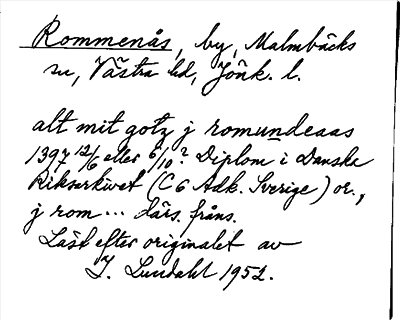 Rommenås, by, Malmbäcks
sn, Västra hd, Jönk. l.
alt mit gotz j romundeaas
1397 12/6 eller 6/10? Diplom i Danska
Riksarkivet (C6 Adk. Sverige) or.,
j rom... därs. fråns.
Läst efter originalet av
J. Lundahl 1952.